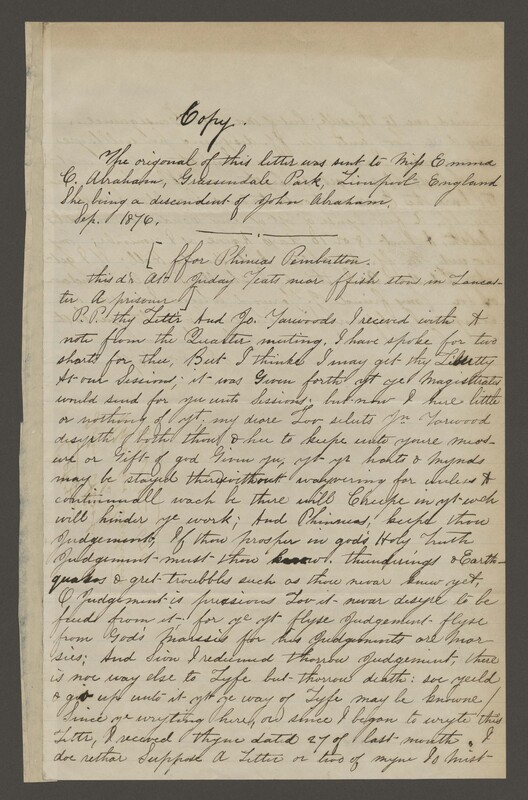 Copy.
The origonal of this letter was sent to Miss Emma
C. Abraham, Grassendale Park, Liverpool England
She being a descendent of John Abraham.
Sep. 1876.
[ ffor Phineas Pemberton.
this dd. Att Juday Yeats near ffish stons in Lancas-
ter A prisoner
P. P. thy Lettr And Jo. Yarwoods I receved with A
note from the Quarter meeting. I have spoke for two
sharts for thee, But I thinke I may get thy Liberty
At our Sessions; it was Given forth yt ye Magistrates
would send for yu unto Sessions: but now I here little
or nothing of yt, my deare Lov saluts Jn Yarwood
desyrth both thou & hee to keepe unto youre meas-
ure or Gift of god Given yu, yt yr harts & mynds
may be stayed there without wayvering for unless A
continuall wach be there will Creepe in yt wch
will hinder ye work; And Phineas; keepe thou
Judgement; If thou prosper in gods Holy Truth
Judgement must thou know. thunderings & Earth-
quakes & gret troubbls such as thou never knew yet,
O Judgement is precious Lov it never desyre to be
freed from it, for ye yt flyse Judgement flyse
from Gods Marssis for his Judgments are Mar-
sies; And Sion I redeemed thorrow Judgement, there
is noe way else to Lyfe but thorrow death: soe yeeld
& giv up unto it yt ye way of Lyfe may be knowne /
Since ye wryting here, or since I began to wryte this
Lettr, I receved thyne dated 27 of last month. I
doe rethar suppose A Letter or two of myne Is mist-